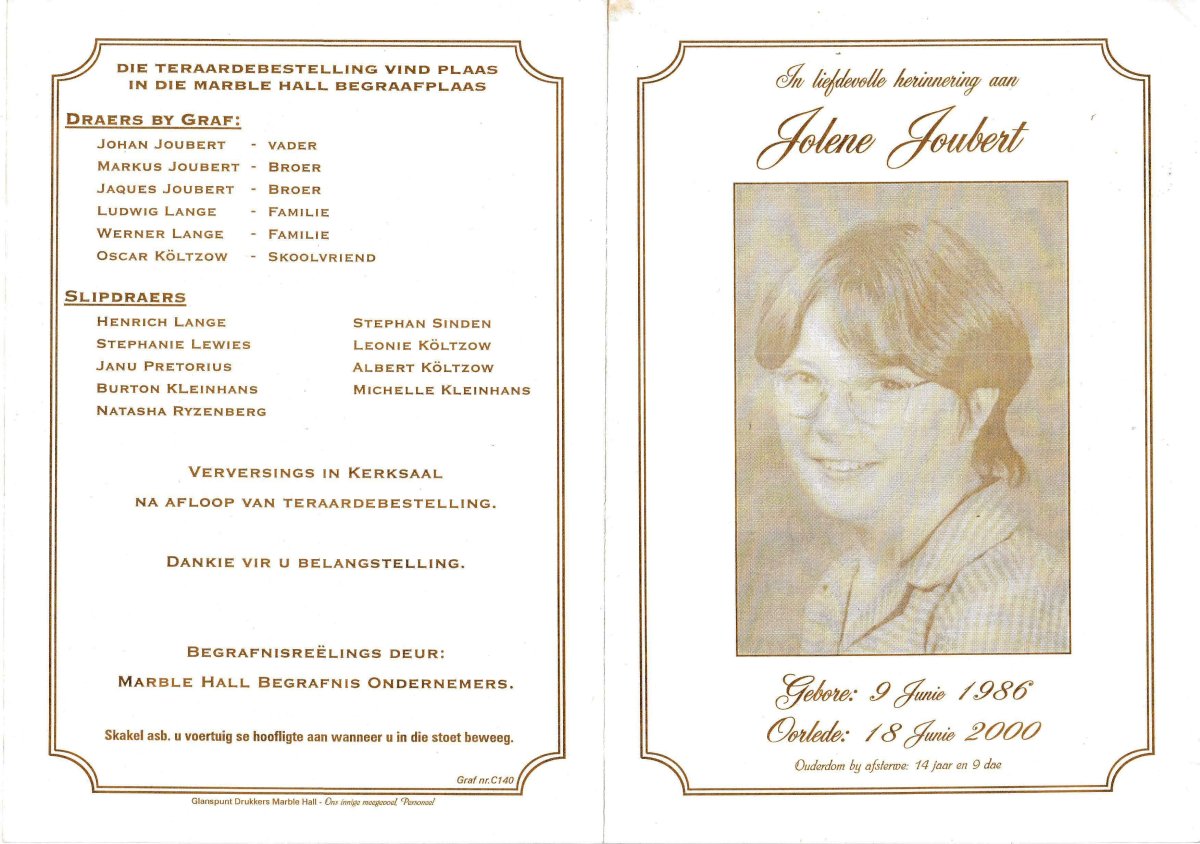 DIE TERAARDEBESTELLING VIND PLAAS
IN DIE MARBLE HALL BEGRAAFPLAAS
DRAERS BY GRAF:
JOHAN JOUBERT - VADER
MARKUS JOUBERT - BROER
JAQUES JOUBERT - BROER
LUDWIG LANGE - FAMILIE
WERNER LANGE - FAMILIE
OSCAR KÖLTZOW - SKOOLVRIEND
SLIPDRAERS
HENRICH LANGE
STEPHANIE LEWIES
JANU PRETORIUS
BURTON KLEINHANS
NATASHA RYZENBERG
STEPHAN SINDEN
LEONIE KÖLTZOW
ALBERT KÖLTZOW
MICHELLE KLEINHANS
VERVERSINGS IN KERKSAAL
NA AFLOOP VAN TERAARDEBESTELLING.
DANKIE VIR U BELANGSTELLING.
BEGRAFNISREËLINGS DEUR:
MARBLE HALL BEGRAFNIS ONDERNEMERS.
Skakel asb. u voertuig se hoofligte aan wanneer u in die stoet beweeg.
Graf nr.C140
Glanspunt Drukkers Marble Hall - Ons innige meegevoel, Personeel
In liefdevolle herinnering aan
Jolene Joubert
Gebore: 9 Junie 1986
Oorlede: 18 Junie 2000
Ouderdom by afsterwe: 14 jaar en 9 dae